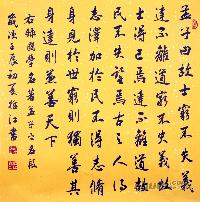 孟子曰故士窮不失義
達不離道窮不失義故
士得己焉達不離道故
民不失望焉古之人得
志澤加於民不得志脩
身見於世窮則獨善其
身達則兼善天下
右錄國學名著孟子之名段
壬辰初夏 江書